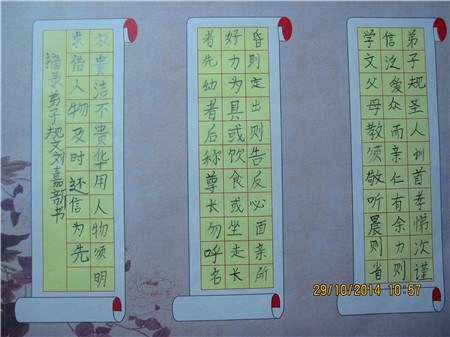 弟子规圣人训首孝悌次谨
信泛爱众而亲仁有余力则
学文父母教须敬听晨则省
昏则定出则告反必面亲所
好力为具或饮食或坐走长
者先幼者后称尊长勿呼名
衣贵洁不贵华用人物须明
求借人物及时还信为先
弟子规文刘嘉新书
29/10/2014 10:57